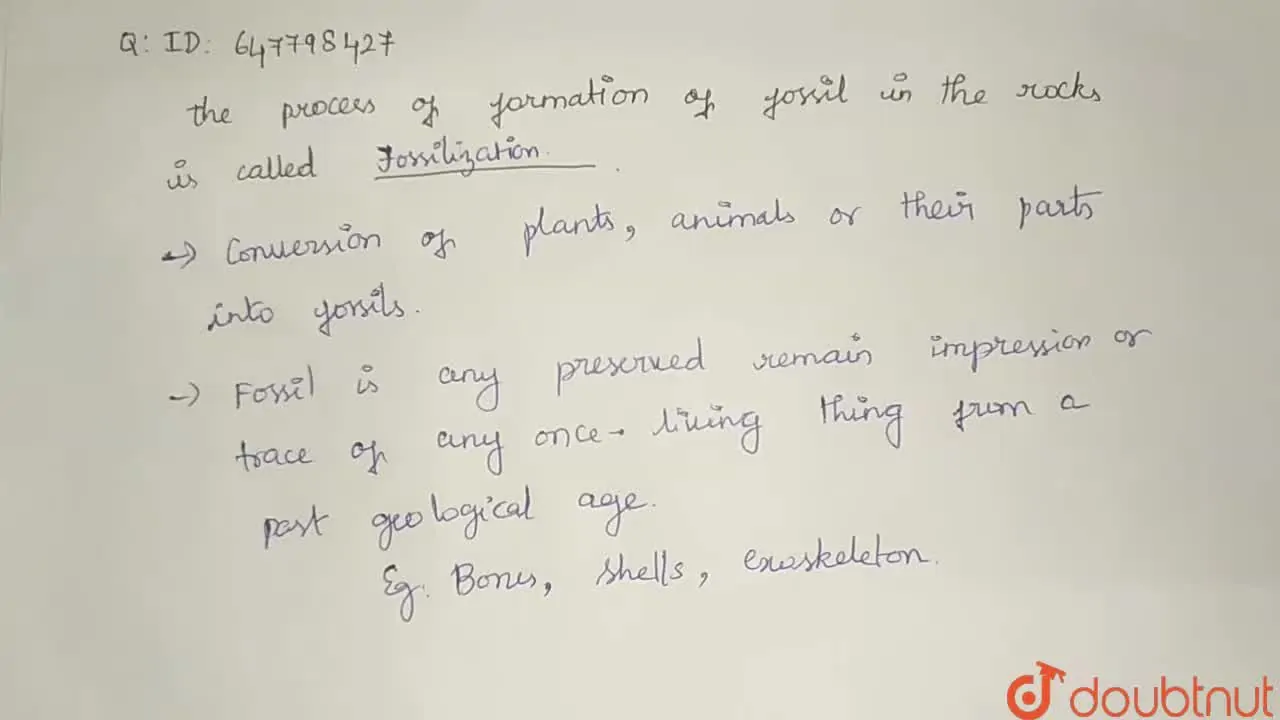 Q: ID: 647798427
the process of formation of fossil in the rocks
is called Fossilization.
→ Conversion of plants, animals or their parts
into fossils.
→ Fossil is any preserved remain impression or
trace of any once-living thing from a
past geological age.
Eg. Bones, shells, exoskeleton.
doubtnut